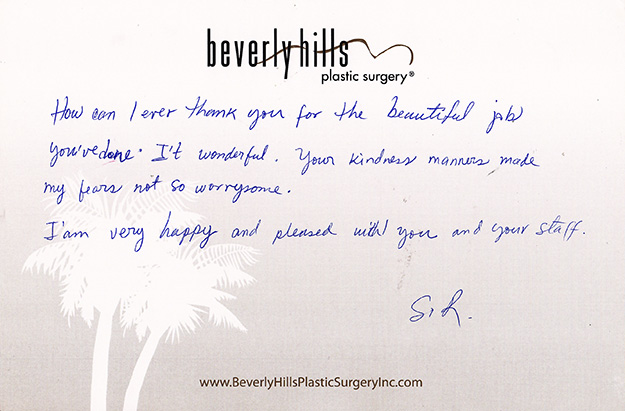 beverlyhills
plastic surgery®
How can I ever thank you for the beautiful job
you've done. I't wonderful. Your kindness manners, made
my fears not so worrysome.
I'am very happy and pleased with you and your staff.
S. R.
www.BeverlyHillsPlasticSurgeryInc.com